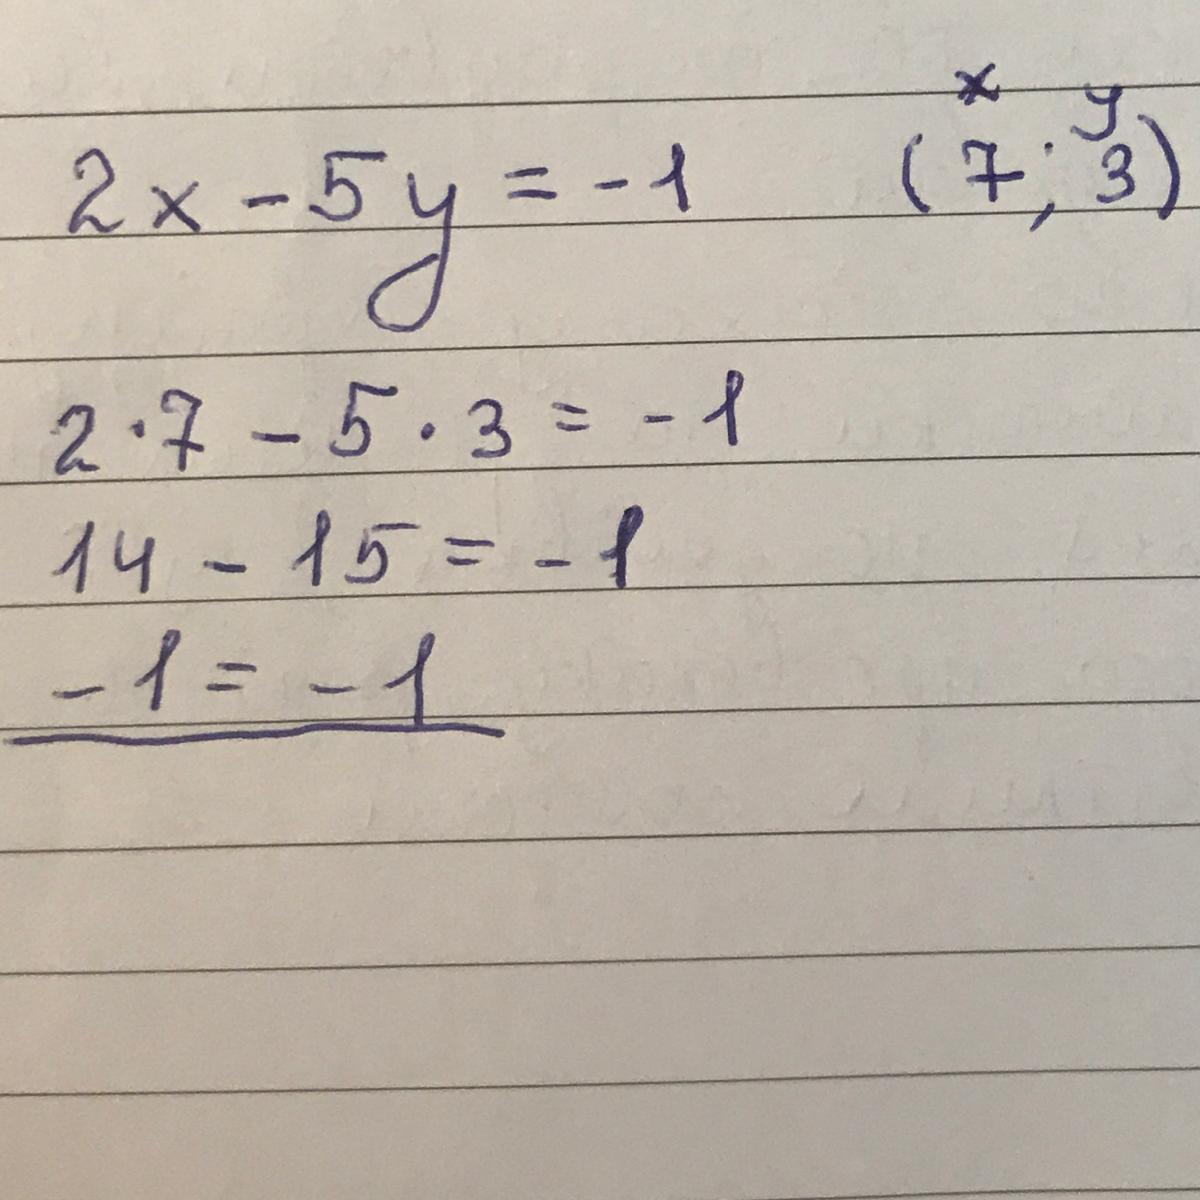 2x - 5y = -1
x y
(7; 3)
2·7 - 5·3 = -1
14 - 15 = -1
-1 = -1